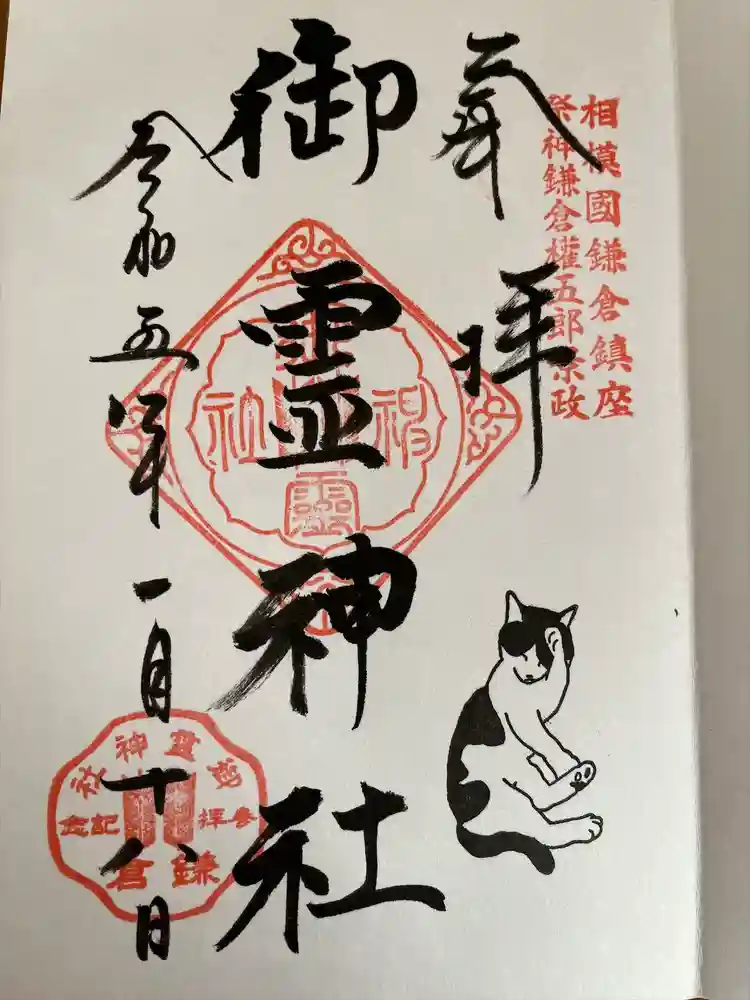 相模國鎌倉鎮座
祭神鎌倉權五郎景政
奉拝
御霊神社
令和五年一月十八日
御靈神社
参拝記念
鎌倉